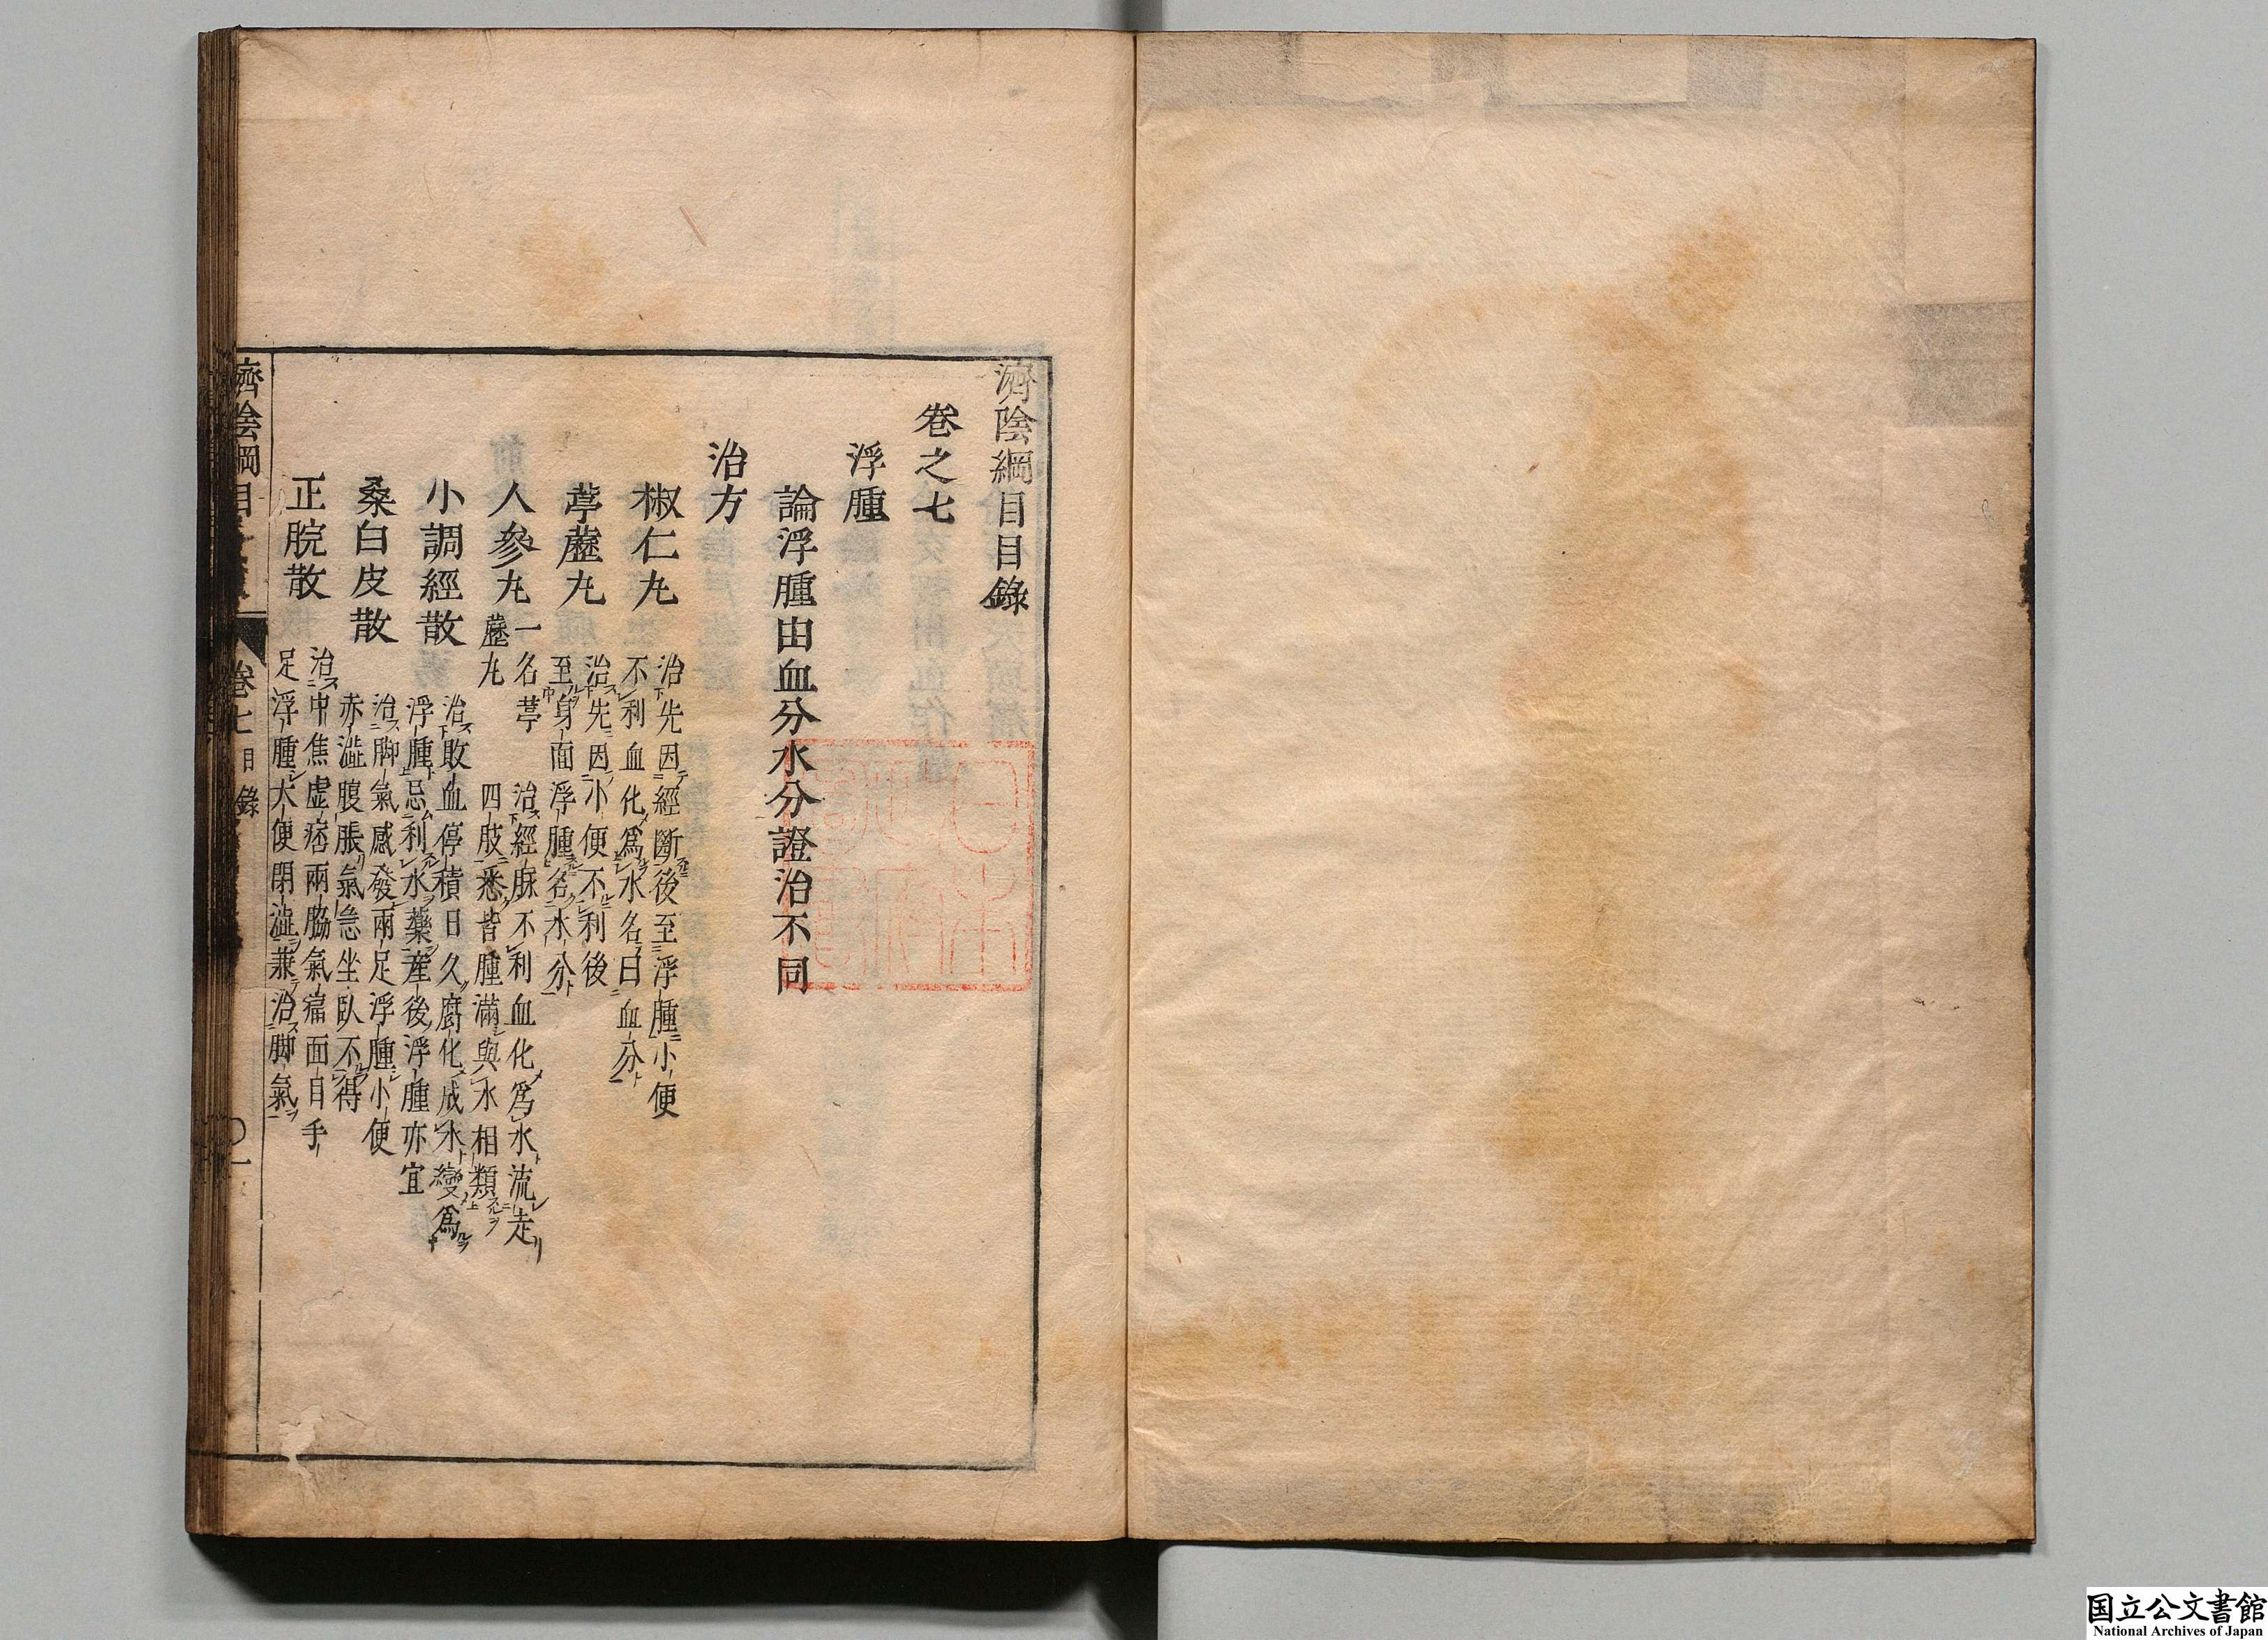 濟陰綱目目錄
卷之七
浮腫
論浮腫由血分水分證治不同
治方
椒仁丸
治先因經斷後至浮腫小便
不利血化爲水名曰血分
葶藶丸
治先因小便不利後
至身面浮腫名水分
人參丸
一名葶
藶丸
治經脉不利血化爲水流走
四肢悉皆腫滿與水相類
小調經散
治敗血停積日久腐化成水變爲
浮腫忌利水藥產後浮腫亦宜
桑白皮散
治脚氣感發兩足浮腫小便
赤澁腹脹氣急坐臥不得
正脘散
治中焦虛痞兩脇氣痛面目手
足浮腫大便閉澁兼治脚氣
濟陰綱目
卷七
目錄
一
国立公文書館
National Archives of Japan